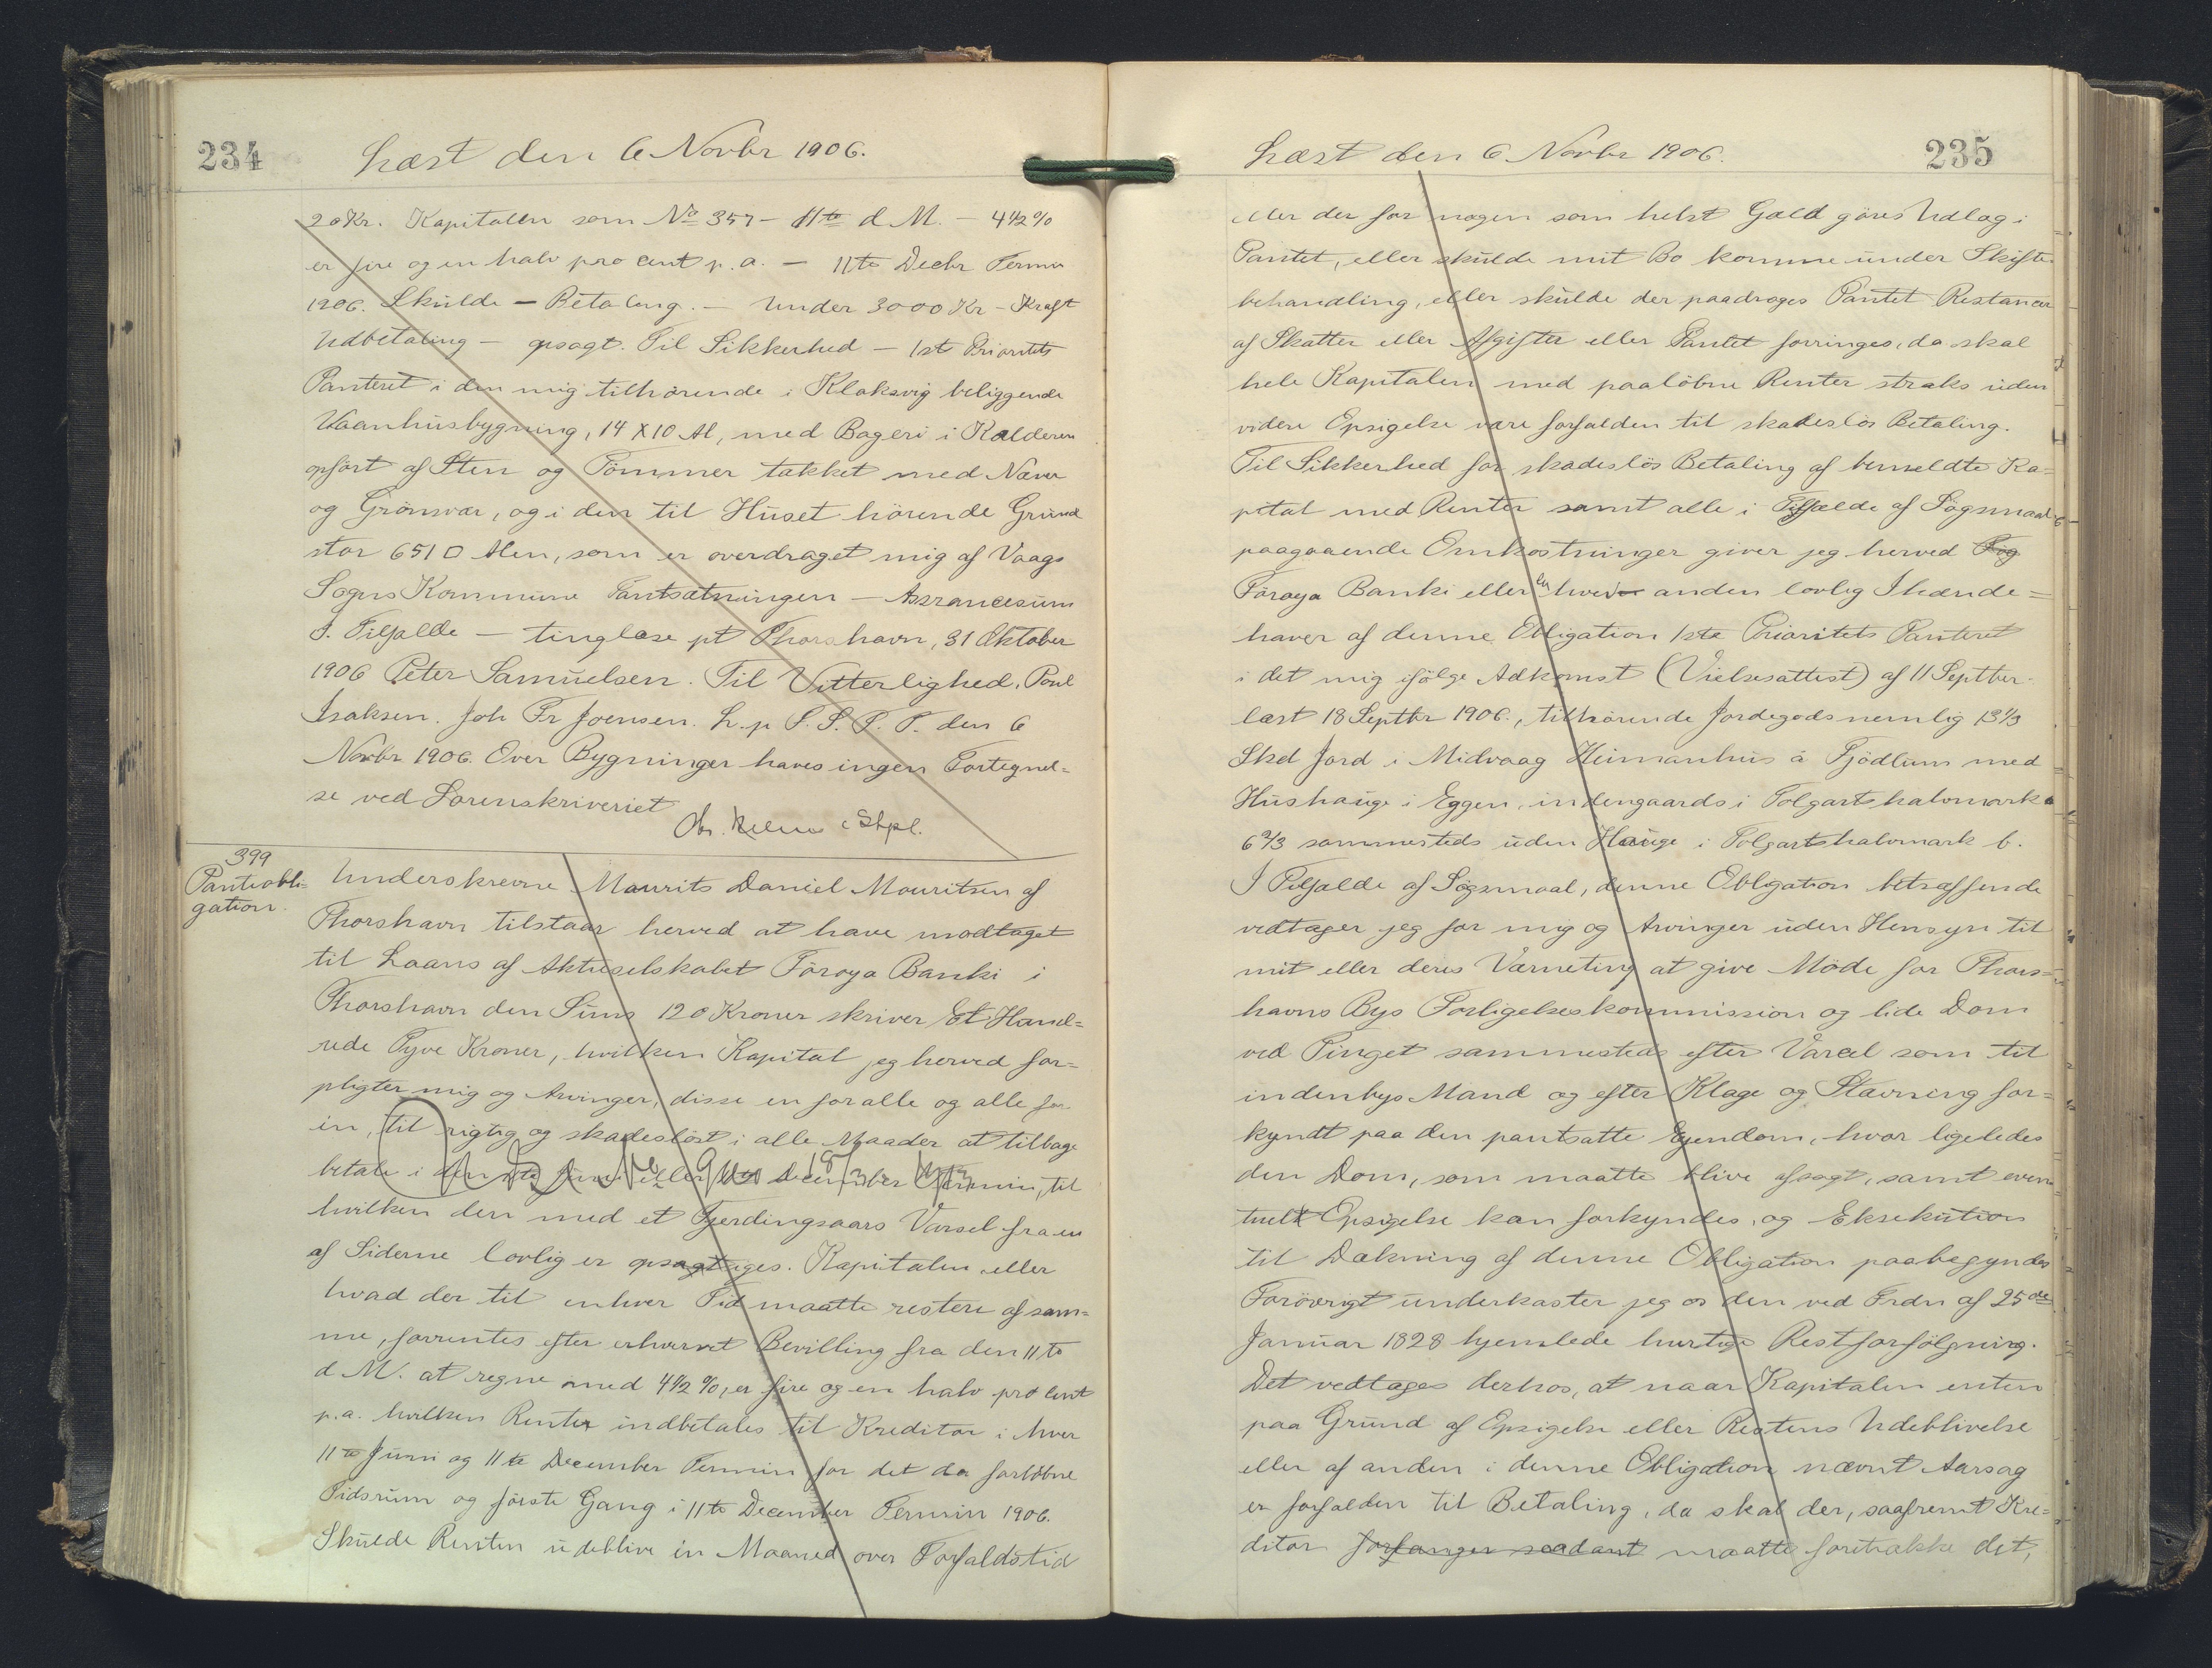 234
Læst den 6 Novbr 1906.
20 Kr. Kapitalen som No 357 – 11te d M. – 4 1/2 %
er fire og en halv pro cent p. a. – 11te Decbr Termin
1906. Skulde – Betaling. – Under 3000 Kr – Kraft
Udbetaling – opsagt. Til Sikkerhed – 1st Prioritets
Panteret i den mig tilhørende i Klaksvig beliggende
Vaanhusbygning, 14 X 10 Al, med Bageri i Kælderen
opført af Sten og Tømmer tækket med Næver
og Grønsvær, og i den til Huset hörende Grund
stor 651 □ Alen, som er overdraget mig af Vaags
Sogns Kommune Pantsætningen – Assrancesum
I. Tilfælde – tinglæse pt Thorshavn, 31 Oktober
1906 Peter Samuelsen. Til Vitterlighed. Poul
Isaksen. Joh Fr Joensen. L. p S. S. P. T. den 6
Novbr 1906. Over Bygninger haves ingen Fortegnel=
se ved Sorenskriveriet
399
Panteobli=
gation.
Underskrevne Maurits Daniel Mouritsen af
Thorshavn tilstaar herved at have modtaget
til Laans af Aktieselskabet Föroya Banki i
Thorshavn den Sum 120 Kroner skriver Et Hund=
rede Tyve Kroner, hvilken Kapital jeg herved for=
pligter mig og Arvinger, disse en for alle og alle for
en, til rigtig og skadeslöst i alle Maader at tilbage
betale i den 11te Juni eller 11te December Termin, til
hvilken den med et Fjerdingsaars Varsel fra en
af Siderne lovlig er opsagt iges. Kapitalen eller
hvad der til enhver Tid maatte restere af sam=
me, forrentes efter erhvervet Bevilling fra den 11te
d M. at regne med 4 1/2 %, er fire og en halv pro cent
p.a. hvilken Rente indbetales til Kreditor i hver
11te Juni og 11te December Termin for det da forlöbne
Tidsrum og förste Gang i 11te December Termin 1906.
Skulde Renten udeblive en Maaned over Forfaldstid
235
Læst den 6 Novbr 1906.
eller der for nogen som helst Gæld göres Udlæg i
Pantet, eller skulde mit Bo komme under Skifte
behandling, eller skulde der paadrages Pantet Restancer
af Skatter eller Afgifter eller Pantet forringes, da skal
hele Kapitalen med paalöbne Renter straks uden
videre Opsigelse være forfalden til skadeslös Betaling.
Til Sikkerhed for skadeslös Betaling af bemeldte Ka=
pital med Renter samt alle i Tilfælde af Sögsmaal
paagaaende Omkostninger giver jeg herved
Föroya Banki eller en hver anden lovlig Ihænde=
haver af denne Obligation 1ste Prioritets Panteret
i det mig ifölge Adkomst (Vielsesattest) af 11 Septber
læst 18 Septbr 1906., tilhörende Jordegods nemlig 13 1/3
Skd Jord i Midvaag Heimanhus á Fjödlum med
Hushauge i Eggen, indengaards i Tolgartshalvmark a
6 2/3 sammesteds uden Hauge i Tolgartshalvmark b.
I Tilfælde af Sögsmaal, denne Obligation betræffende
vedtager jeg for mig og Arvinger uden Hensyn til
mit eller deres Værneting at give Möde for Thors=
havns Bys Forligelseskommission og lide Dom
ved Tinget sammesteds efter Varsel som til
indenbys Mand og efter Klage og Stævning for=
kyndt paa den pantsatte Ejendom, hvor ligeledes
den Dom, som maatte blive afsagt, samt even
tuelt Opsigelse kan forkyndes, og Eksekution
til Dækning af denne Obligation paabegyndes
Foróvrigt underkaster jeg os den ved Frdn af 25de
Januar 1828 hjemlede hurtige Restforfölgning.
Det vedtages derhos, at naar Kapitalen enten
paa Grund af Opsigelse eller Restens Udeblivelse
eller af anden i denne Obligation nævnt Aarsag
er forfalden til Betaling, da skal der, saafremt Kre=
ditor forlanger saadant maatte foretrække det,